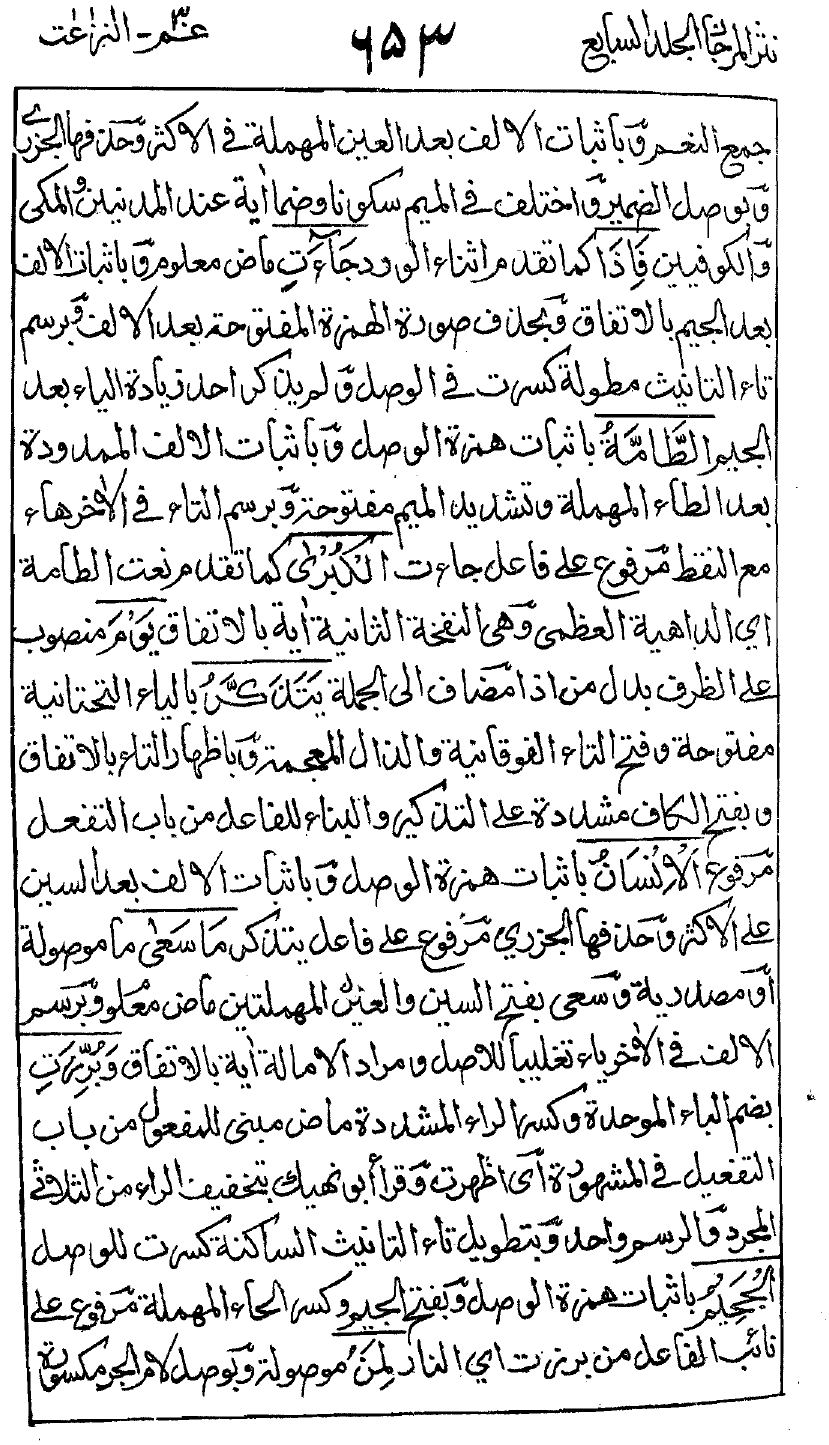 نثر المرجان المجلد السابع ٦٥٣ عم ۳۰ - النزاعت
جمع النعم وّباثبات الالف بعد العين المهملة في الاكثر وّحذفها الجزري
وّبوصل الضمير وّاختلف في الميم سكونا وضما اٰية عند المدنيين والمكى
وّالكوفيين فَاِذَا كما تقدم اثناء الورد جَآءَتِ ماض معلوم وّباثبات الالف
بعد الجيم بالاتفاق وّبحذف صورة الهمزة المفتوحة بعد الالف وّبرسم
تاء التانيث مطولة كسرت في الوصل وّلم يذكر احد زيادة الياء بعد
الجيم الطَّآمَّةُ باثبات همزة الوصل وّباثبات الالف الممدودة
بعد الطاء المهملة وتشديد الميم مفتوحة وّبرسم التاء في الاٰخر هاء
مع النقط مرفوع على فاعل جاءت الْكُبْرٰى كما تقدم نعت الطامة
اي الداهية العظمى وّهى النفخة الثانية اٰية بالاتفاق يَوْمَ منصوب
على الظرف بدل من اذا مضاف الى الجملة يَتَذَكَّرُ بالياء التحتانية
مفتوحة وفتح التاء الفوقانية والذال المعجمة وّباظهار التاء بالاتفاق
وبفتح الكاف مشددة على التذكير والبناء للفاعل من باب التفعل
مرفوع اَلْاِنْسَانُ باثبات همزة الوصل وّباثبات الالف بعد السين
على الاكثر وّحذفها الجزري مرفوع على فاعل يتذكر مَا سَعٰى ما موصولة
اوّ مصدرية وّسعى بفتح السين والعين المهملتين ماض معلوم وّبرسم
الالف في الاٰخر ياء تغليبا للاصل ومراد الامالة اٰية بالاتفاق وَبُرِّزَتِ
بضم الباء الموحدة وكسر الراء المشددة ماض مبنى للمفعول من باب
التفعيل في المشهورة اىّ اظهرت وّقرأ ابو نهيك بتخفيف الراء من الثلاثي
المجرد وّالرسم واحد وّبتطويل تاء التانيث الساكنة كسرت للوصل
الْجَحِيْمُ باثبات همزة الوصل وّبفتح الجيم وكسر الحاء المهملة مرفوع على
نائب الفاعل من برزت اي النار لِمَنْ موصولة وّبوصل لام الجر مكسورة